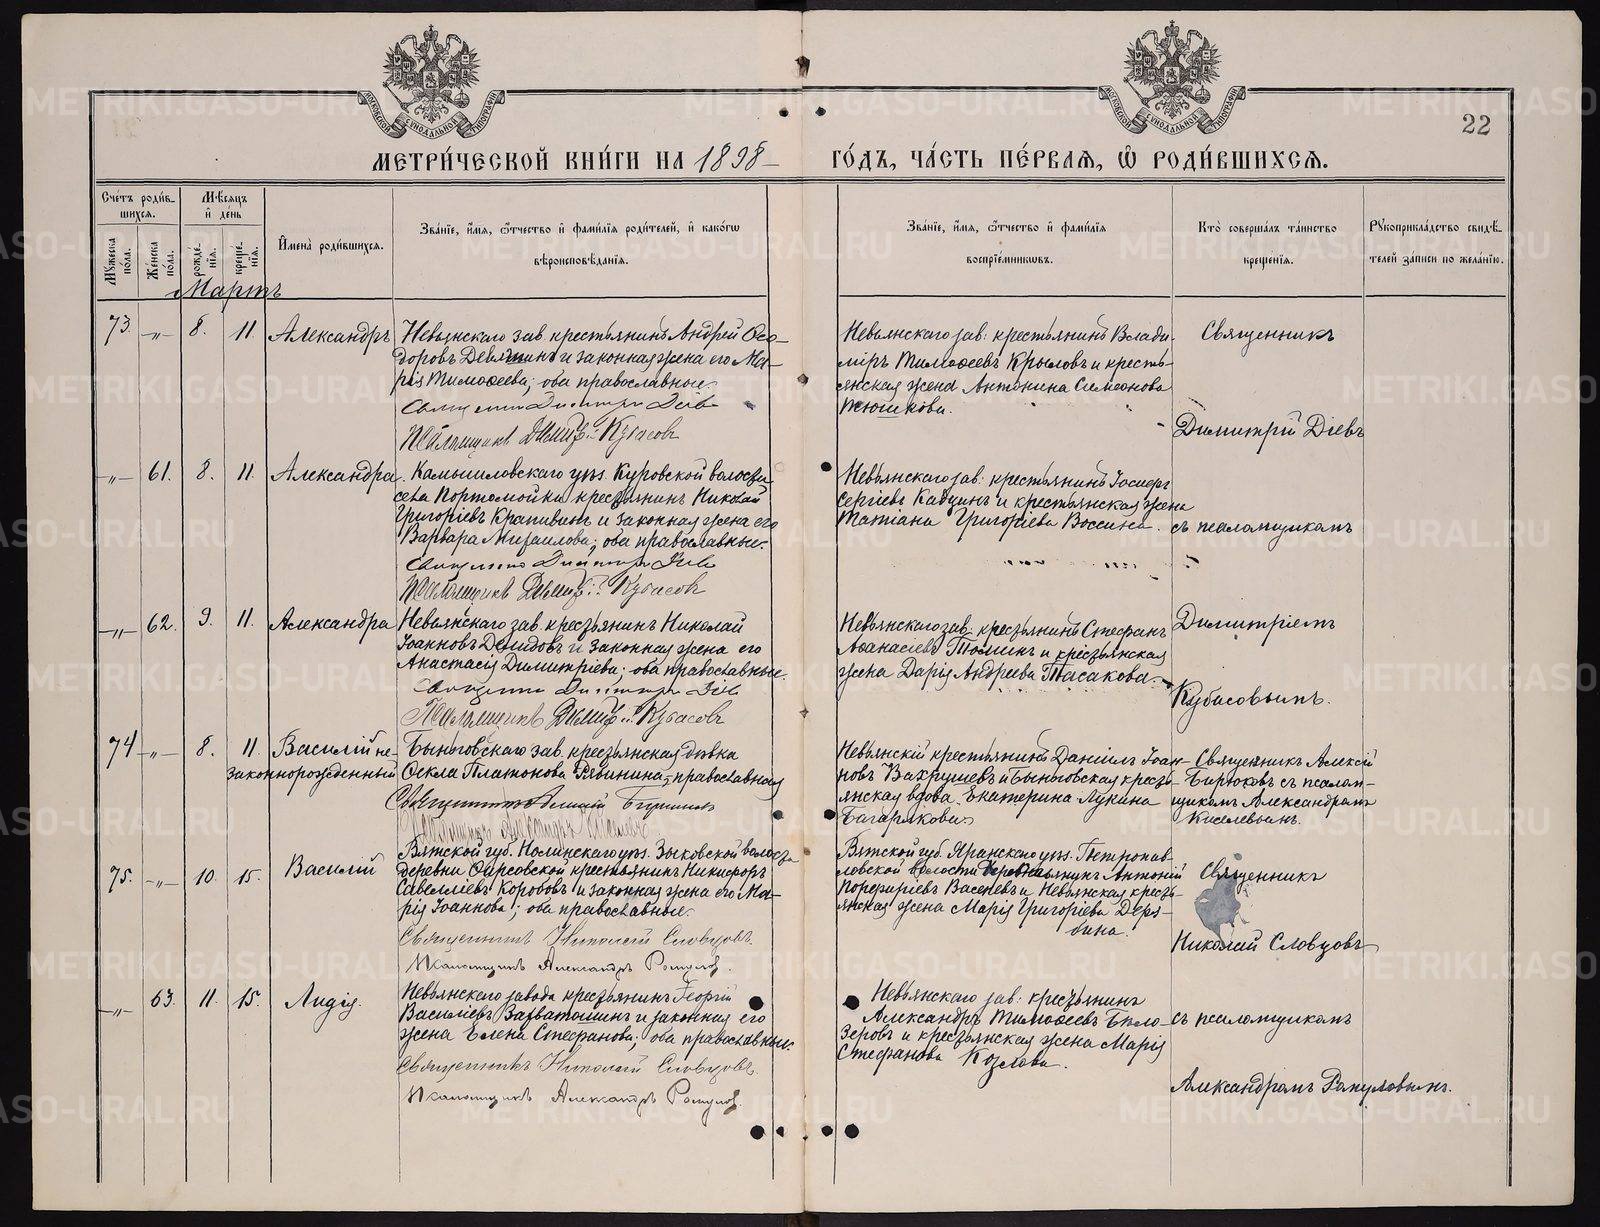 22
МЕТРИ́ЧЕСКОЙ КНИ́ГИ НА 1898 ГО́ДЪ, ЧА́СТЬ ПЕ́РВАѦ, Ѡ҆ РОДИ́ВШИХСѦ.
Сче́тъ роди́в-
шихсѧ.
Мѣ́сѧцъ
и҆ де́нь
Му́жеска по́ла.
Же́нска по́ла.
рожде́нїѧ.
креще́нїѧ.
И҆мена̀ роди́вшихсѧ.
Зва́нїе, и҆́мѧ, ѻ҆́тчество и҆ фами́лїѧ роди́телей, и҆ како́гѡ
вѣроисповѣ́данїѧ.
Зва́нїе, и҆́мѧ, ѻ҆́тчество и҆ фами́лїѧ
воспрїе́мникѡвъ.
Кто̀ соверша́лъ та́инство
креще́нїѧ.
Рꙋкоприкла́дство свидѣ́-
телей за́писи по жела́нїю.
Мартъ
73. -"- 8. 11. Александръ
Невьянскаго зав. крестьянинъ Андрей Ѳео-
доровъ Девяткинъ и законная жена его Ма-
рія Тимоѳеева; оба православные.
Священникъ Димитрій Діевъ
Псаломщикъ Димитр. Кубасовъ
Невьянскаго зав: крестьянинъ Влади-
міръ Тимоѳеевъ Крыловъ и кресть-
янская жена Антонина Симеонова
Священникъ
Димитрій Діевъ
-"- 61. 8. 11. Александра.
Камышловскаго уѣз. Куровской волости
села Портомойки крестьянинъ Николай
Григоріевъ Крапивинъ и законная жена его
Варвара Михаилова; оба православные.
Священникъ Димитрій Діевъ
Псаломщикъ Димитр. Кубасовъ
Невьянскаго зав: крестьянинъ Іосифъ
Сергіевъ и крестьянская жена
Татіана Григоріева
съ псаломщикомъ
-"- 62. 9. 11. Александра
Невьянскаго зав. крестьянинъ Николай
Іоанновъ Демидовъ и законная жена его
Анастасія Димитріева; оба православные.
Священникъ Димитрій Діевъ
Псаломщикъ Димитр. Кубасовъ
Невьянскаго зав: крестьянинъ Стефанъ
Аѳанасіевъ и крестьянская
жена Дарія Андреева
Димитріемъ
Кубасовымъ.
74 -"- 8. 11. Василій не-
законнорожденный
Быньговскаго зав. крестьянская дѣвка
Ѳекла Платонова Рябинина, православная
Священникъ Алексій Бирюковъ
Псаломщикъ Александръ Киселевъ
Невьянскій крестьянинъ Даніилъ Іоан-
новъ Вахрушевъ и Быньговская кресть-
янская вдова Екатерина Лукина
Багарякова
Священникъ Алексій
Бирюковъ съ псалом-
щикомъ Александромъ
Киселевымъ.
75. -"- 10. 15. Василій
Вятской губ. Нолинскаго уѣз. Зыковской волости
деревни крестьянинъ Никифоръ
Савелліевъ Коробовъ и законная жена его Ма-
рія Іоаннова; оба православные.
Священникъ Николай Словцовъ.
Псаломщикъ Александръ Ромуловъ.
Вятской губ. Яранскаго уѣз. Петропав-
ловской волости крестьянинъ Антоній
Порфиріевъ Васеневъ и Невьянская кресть-
янская жена Марія Григоріева Деря-
бина.
Священникъ
Николай Словцовъ
-"- 63. 11. 15. Лидія.
Невьянскаго завода крестьянинъ Георгій
Василіевъ Захватошинъ и законная его
жена Елена Стефанова; оба православные.
Священникъ Николай Словцовъ.
Псаломщикъ Александръ Ромуловъ.
Невьянскаго зав: крестьянинъ
Александръ Тимоѳеевъ Бѣло-
зеровъ и крестьянская жена Марія
Стефанова Козлова.
съ псаломщикомъ
Александромъ Ромуловымъ.
METRIKI.GASO-URAL.RU